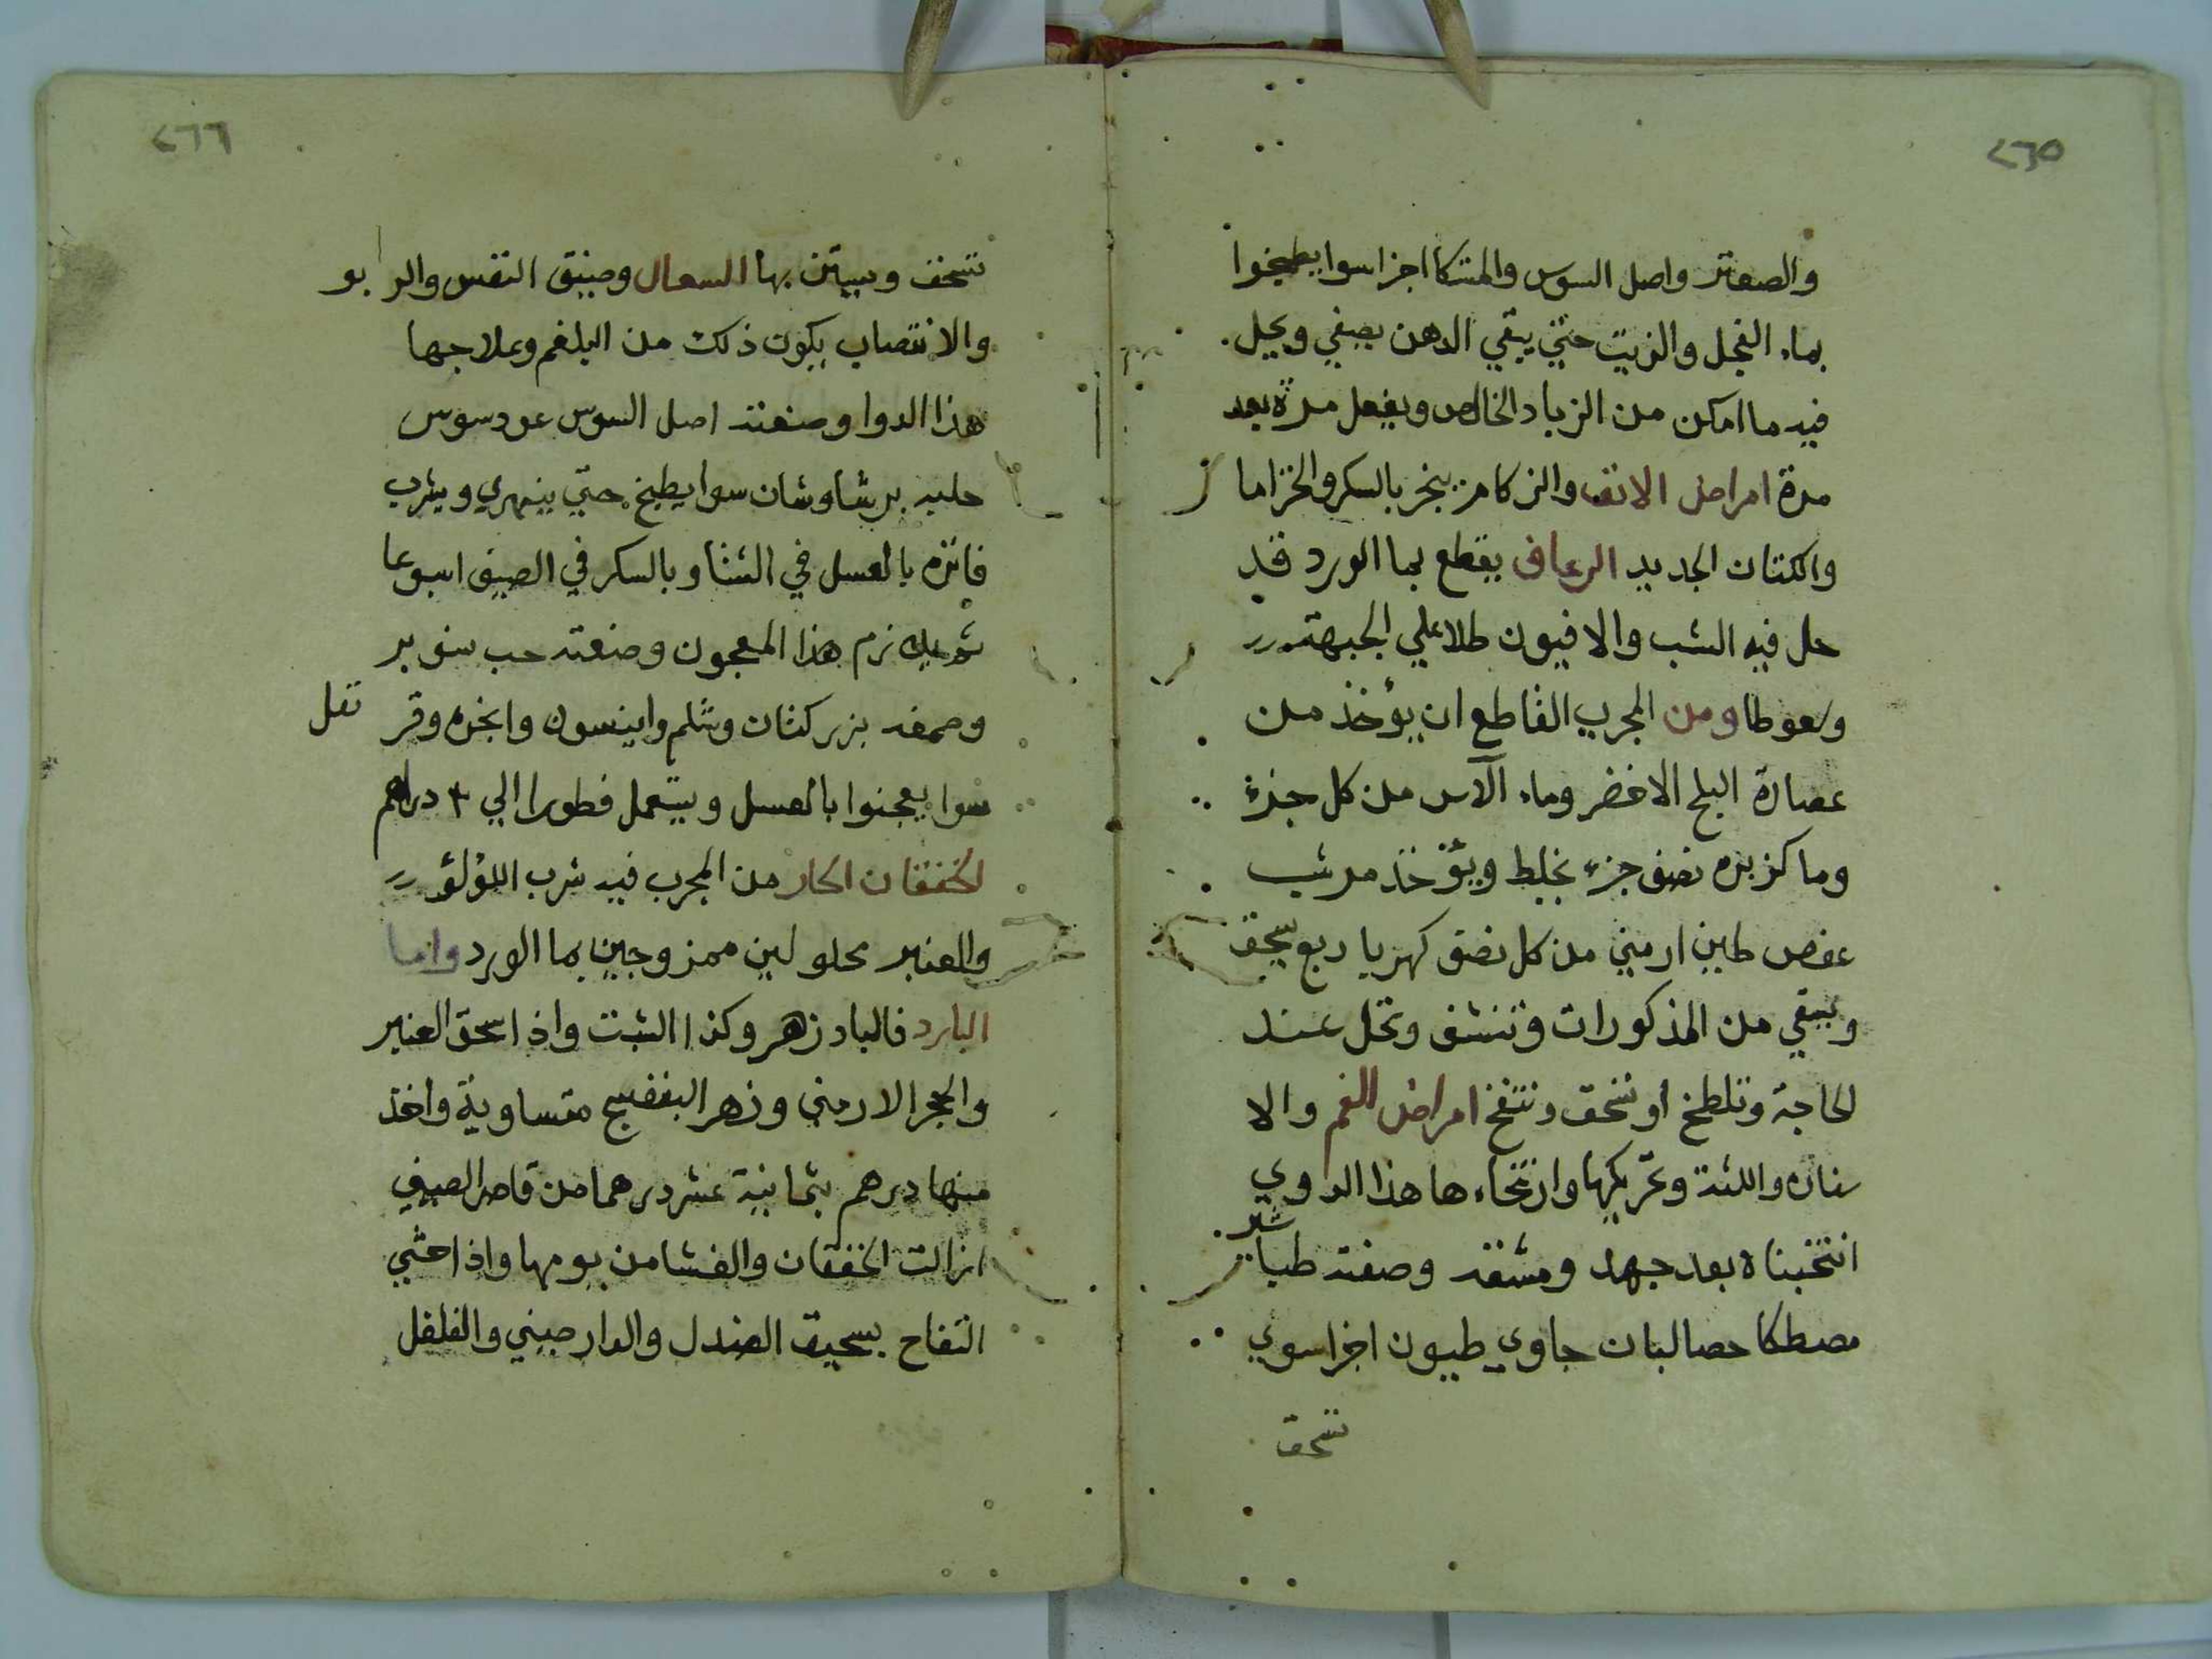 ٢٦٥
والصعتر واصل السوس والمتكا اجزا سوا يطبخوا
بماء الفجل والزيت حتي يبقي الدهن يصفي ويحل
فيه ما امكن من الزباد الخالص ويفعل مدة بعد
مدة امراض الانف والزكام يبخر بالسكر والخزاما
والكتان الجديد الرعاف يقطع بما الورد قد
حل فيه الشب والافيون طلا علي الجبهة
وسعوطا ومن المجرب القاطع ان يؤخذ من
عصارة البلح الاخضر وماء الآس من كل جزء
وما كزبره نصف جزء يخلط ويؤخذ مر شب
عفص طين ارميني من كل نصف كهربا ربع يسحق
ويسقي من المذكورات وتنشف وتحل عند
الحاجة وتلطخ او تسحق وتنفخ امراض الفم والا
سنان واللثة وتحريكها وارتخاءها هذا الدوي
انتخبناه بعد جهد ومشقة وصفته طباشير
مصطكا حصالبان جاوي طيون اجزا سوي
تسحق
٢٦٦
تسحق ويستن بها السعال وضيق النفس والربو
والانتصاب يكون ذلك من البلغم وعلاجها
هذا الدوا وصنعته اصل السوس عود سوس
حلبه برشاوشان سوا يطبخ حتي ينهري ويشرب
فاتره بالعسل في الشتا وبالسكر في الصيف اسبوعا
ثم يلازم هذا المعجون وصنعته حب سنوبر
وصمغه بزر كتان وشلجم وانيسون وانجره وقر نفل
سوا يعجنوا بالعسل ويستعمل فطورا الي ٣ دراهم
الخفقان الحار من المجرب فيه شرب اللؤلؤ
والعنبر محلولين ممزوجين بما الورد واما
البارد فالبادزهر وكذا الشبت واذا سحق العنبر
والحجر الارمني وزهر البنفسج متساوية واخذ
منها درهم بثمانية عشر درهما من قاصر الصيفي
ازالت الخفقان والغشا من يومها واذا حشي
التفاح بسحيق الصندل والدارصيني والفلفل